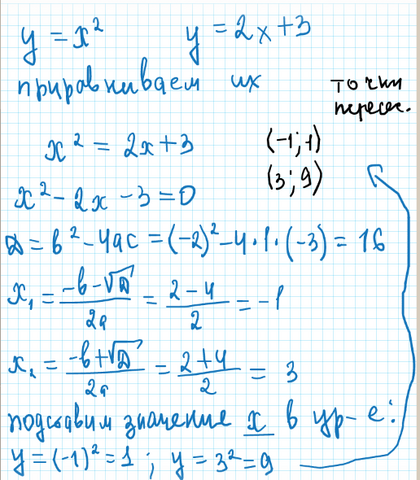 y = x² y = 2x + 3
приравниваем их
точки
пересек.
x² = 2x + 3
(-1; 1)
x² - 2x - 3 = 0
(3; 9)
D = b² - 4ac = (-2)² - 4·1·(-3) = 16
x₁ = (-b - √D)/2a = (2 - 4)/2 = -1
x₂ = (-b + √D)/2a = (2 + 4)/2 = 3
подставим значение x в ур-е:
y = (-1)² = 1; y = 3² = 9